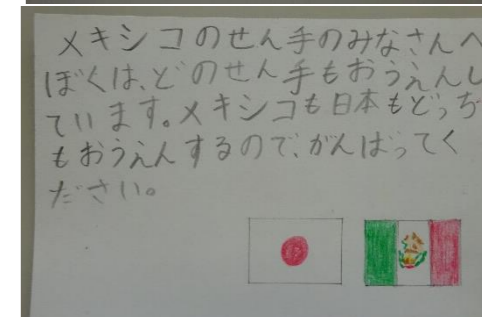 メキシコのせん手のみなさんへ
ぼくは、どのせん手もおうえんし
ています。メキシコも日本もどっち
もおうえんするので、がんばってく
ださい。